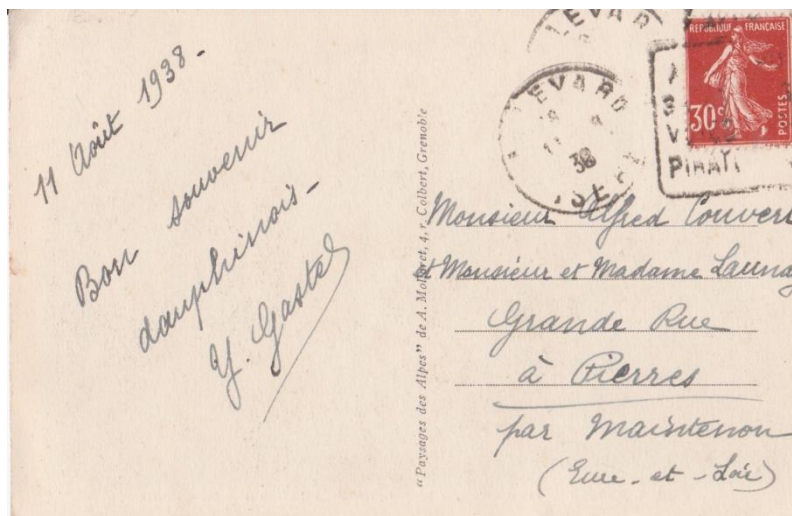 11 Août 1938 -
Bon souvenir
dauphinois -
Y. Gastel
"Paysages des Alpes" de A. Mollaret, 4, r. Colbert, Grenoble
LEVAR
LEVARD
11
38
ISÈRE
RÉPUBLIQUE FRANÇAISE
30c
POSTES
Monsieur Alfred Couvert
et Monsieur et Madame Launay
Grande Rue
à Pierres
par Maintenon
(Eure - et - Loir)